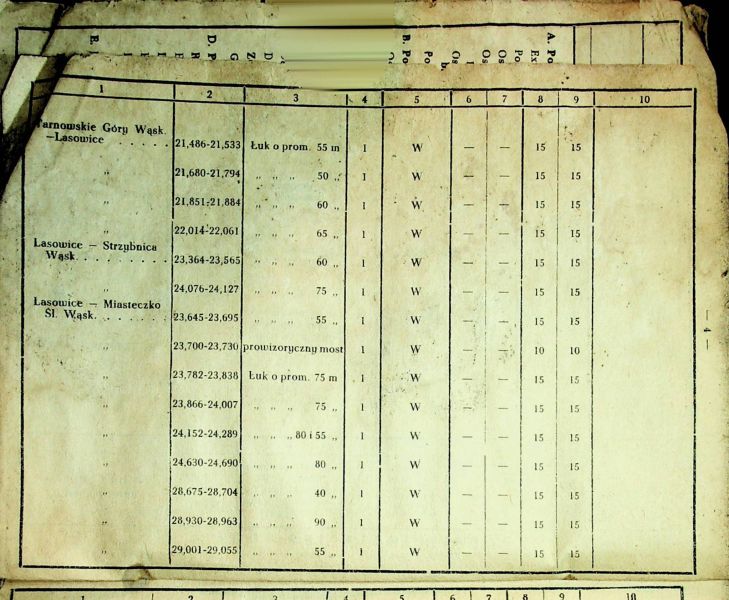 A. Po
Ex
Po
Os
Os
I
Os
b.
Po
B. Po
Z
D
G
D. P
R
E
F
E
E. I
1 2 3 4 5 6 7 8 9 10
Tarnowskie Góry Wąsk.
—Lasowice . . . . . 21,486-21,533 Łuk o prom. 55 m 1 W — — 15 15
„ 21,680-21,794 „ „ „ 50 „ 1 W — — 15 15
„ 21,851-21,884 „ „ „ 60 „ 1 W — — 15 15
„ 22,014-22,061 „ „ „ 65 „ 1 W — — 15 15
Lasowice — Strzybnica
Wąsk. . . . . . . . . 23,364-23,565 „ „ „ 60 „ 1 W — — 15 15
„ 24,076-24,127 „ „ „ 75 „ 1 W — — 15 15
Lasowice — Miasteczko
Śl. Wąsk. . . . . . . 23,645-23,695 „ „ „ 55 „ 1 W — — 15 15
„ 23,700-23,730 prowizoryczny most 1 W — — 10 10
„ 23,782-23,838 Łuk o prom. 75 m 1 W — — 15 15
„ 23,866-24,007 „ „ „ 75 „ 1 W — — 15 15
„ 24,152-24,289 „ „ „ 80 i 55 „ 1 W — — 15 15
„ 24,630-24,690 „ „ „ 80 „ 1 W — — 15 15
„ 28,675-28,704 „ „ „ 40 „ 1 W — — 15 15
„ 28,930-28,963 „ „ „ 90 „ 1 W — — 15 15
„ 29,001-29,055 „ „ „ 55 „ 1 W — — 15 15
— 4 —
1 2 3 4 5 6 7 8 9 10